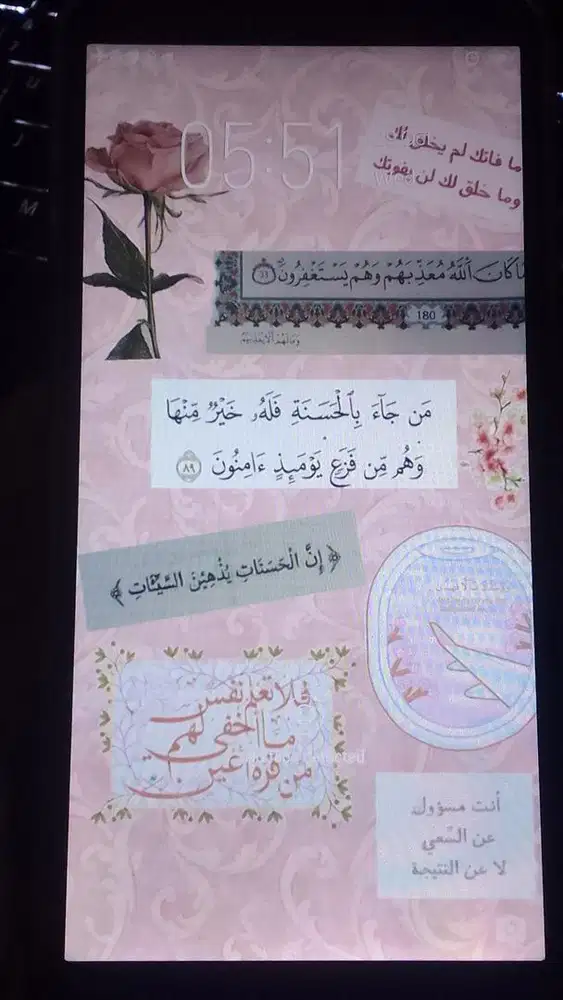 05:51
ما فاتك لم يخلق لك
وما خلق لك لن يفوتك
كَانَ ٱللَّهُ مُعَذِّبَهُمْ وَهُمْ يَسْتَغْفِرُونَ
180
مَن جَآءَ بِٱلْحَسَنَةِ فَلَهُۥ خَيْرٌ مِّنْهَا
وَهُم مِّن فَزَعٍ يَوْمَئِذٍ ءَامِنُونَ ٨٩
﴿ إِنَّ الْحَسَنَاتِ يُذْهِبْنَ السَّيِّئَاتِ ﴾
فلا تعلم نفس
ما أخفي لهم
من قرة أعين
أنت مسؤول
عن السَّعي
لا عن النتيجة
U
J
M